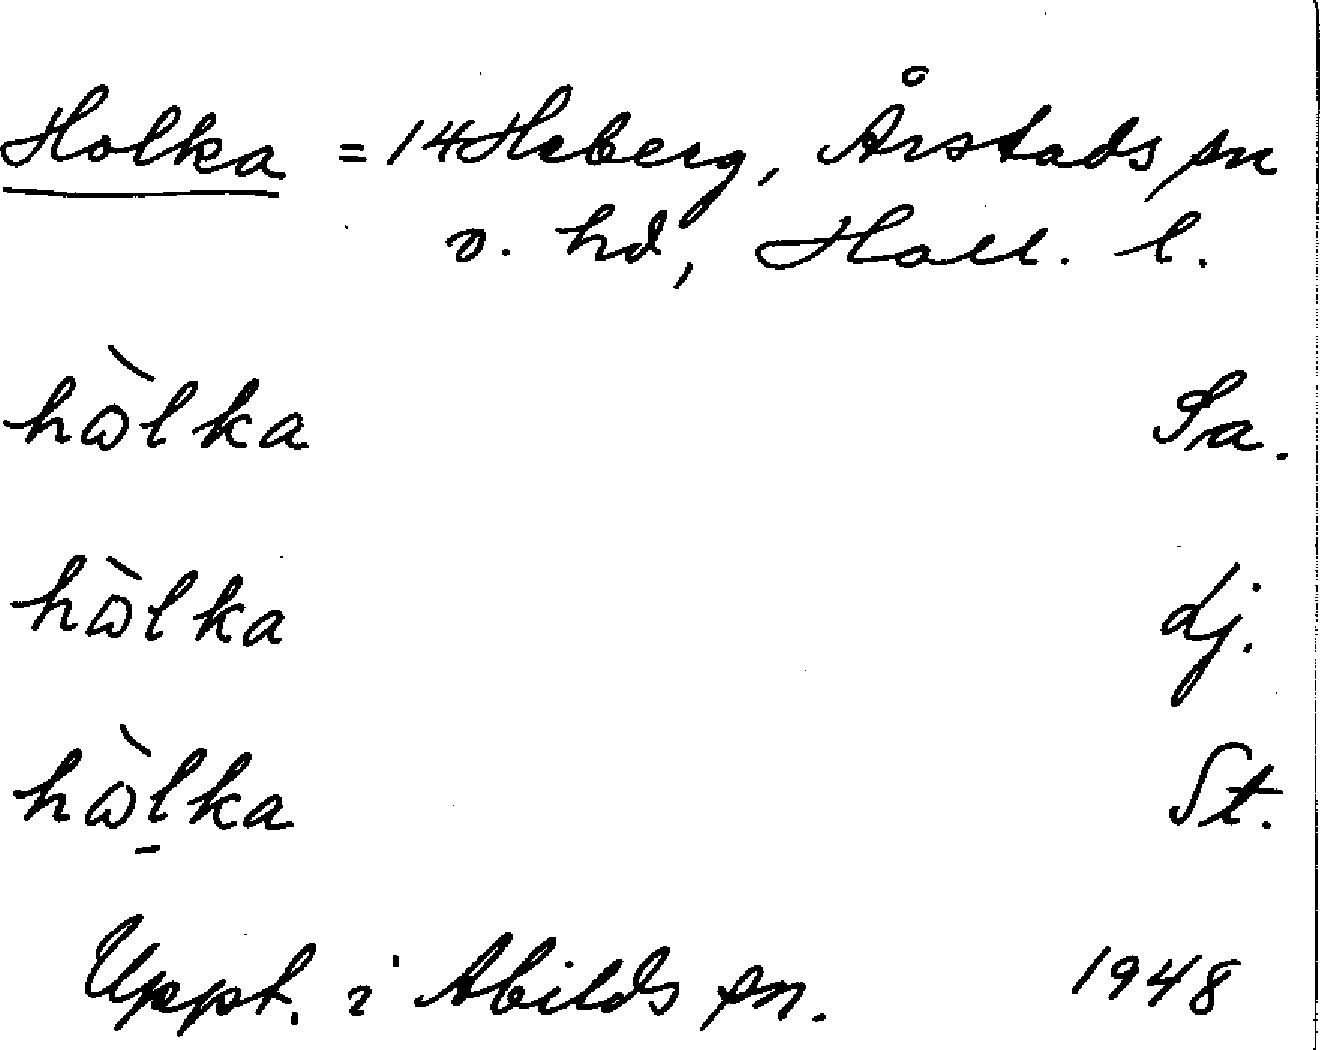 Holka = 14 Heberg, Årstads sn
o. hd, Hall. l.
hòlka Sa.
hòlka dj.
hòl̲ka St.
Uppt. i Abilds sn. 1948